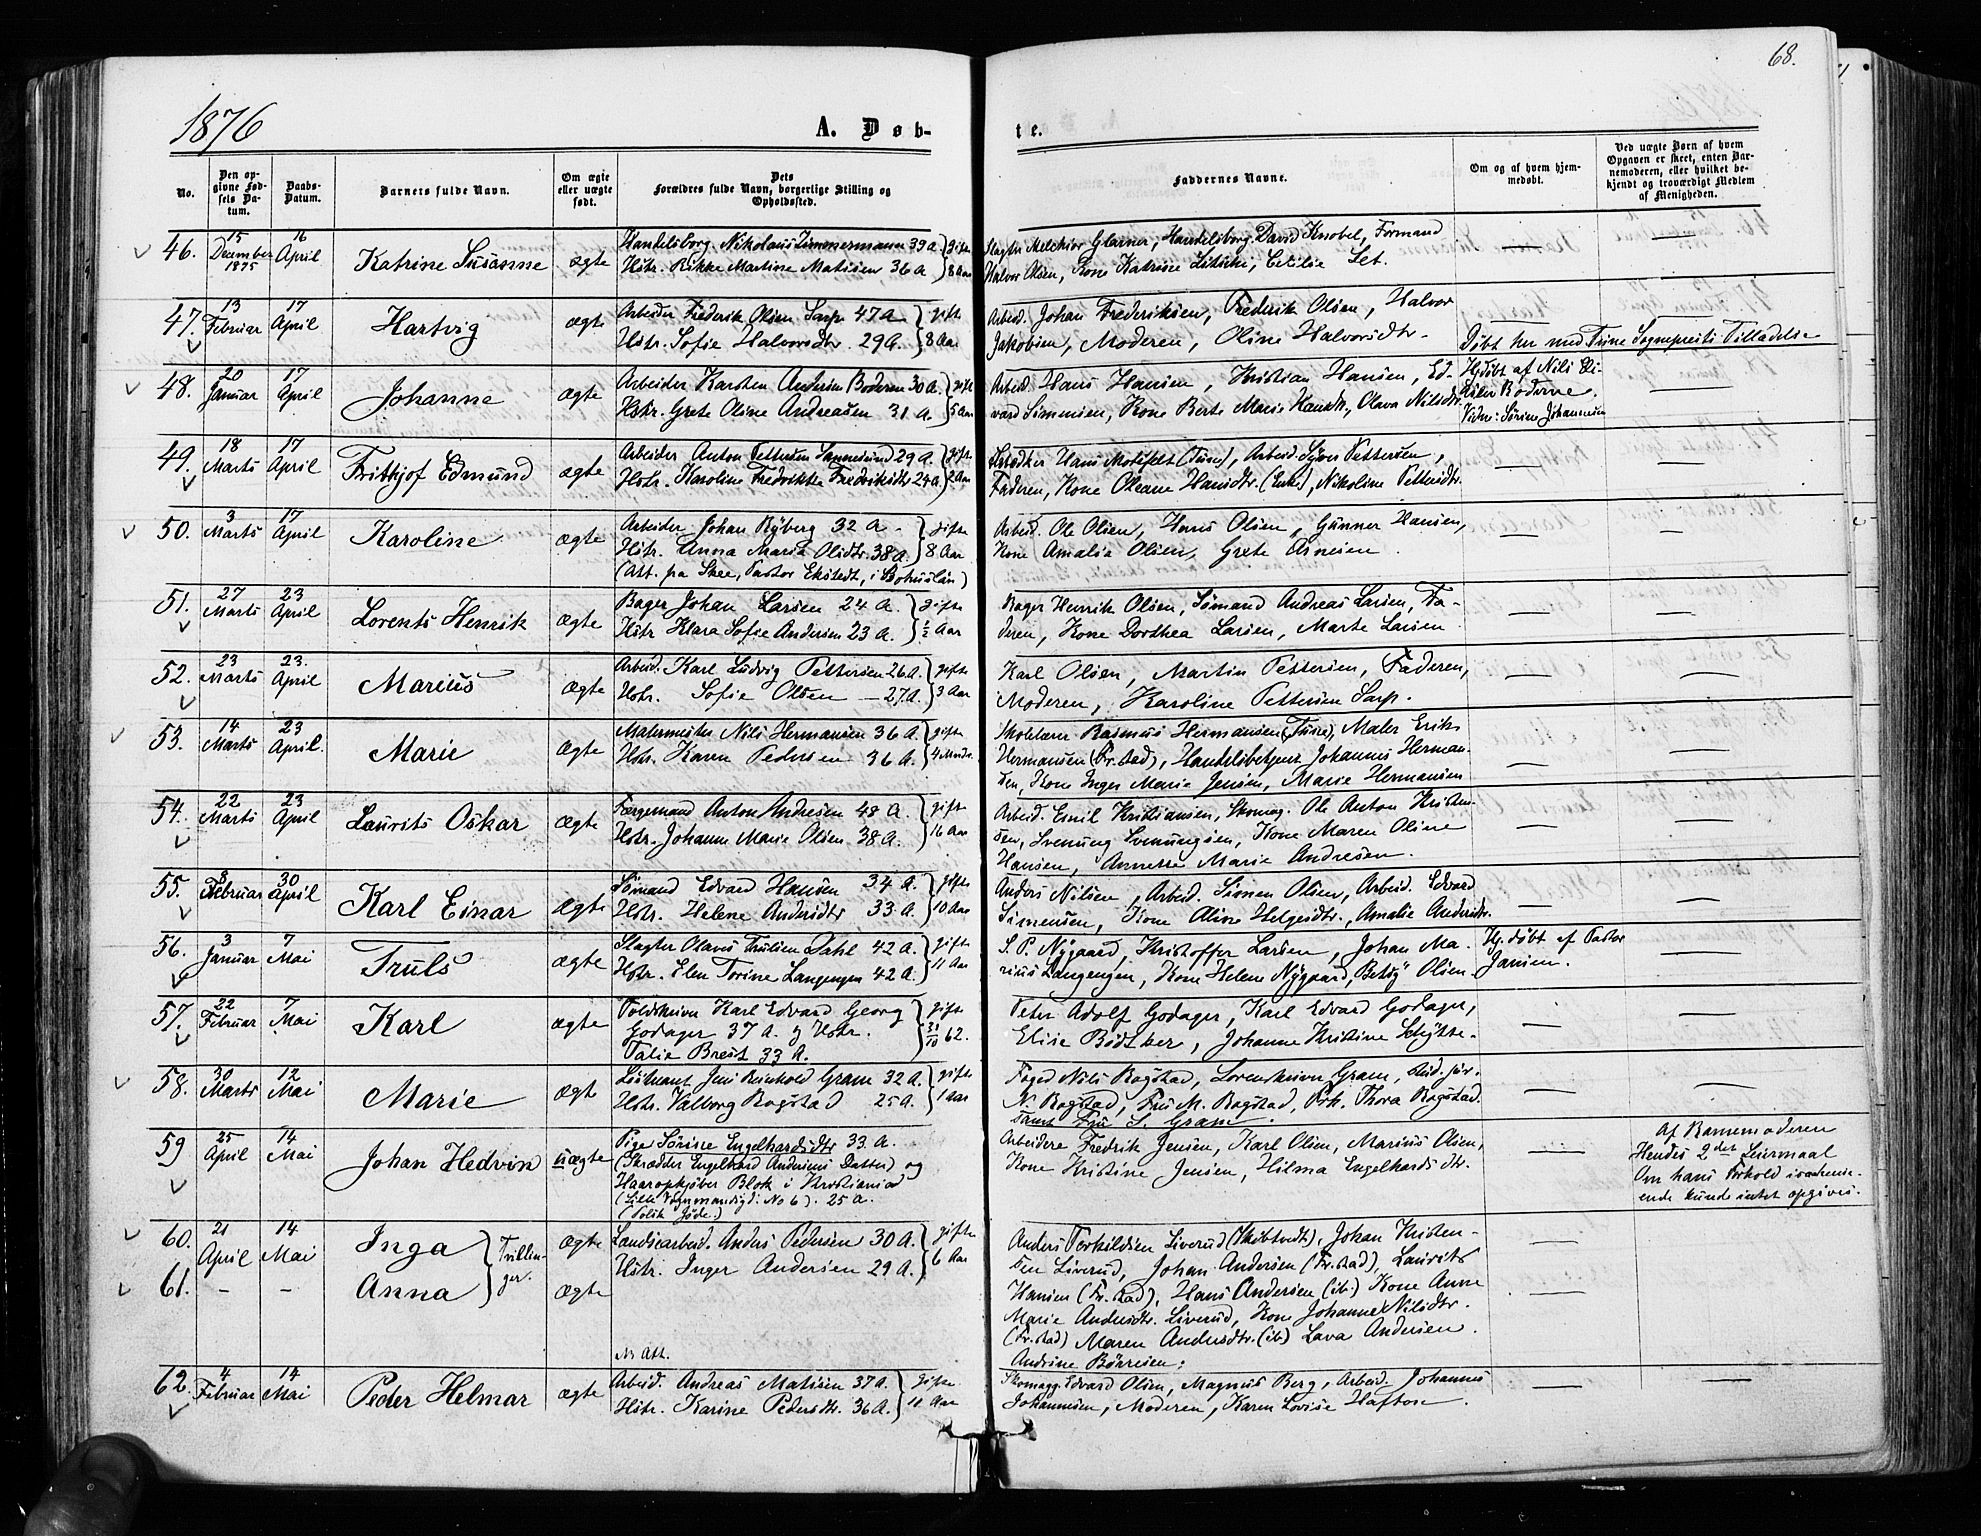 68.
1876
A. Døb-
te.
No.
Den op-
givne Fød-
sels Da-
tum.
Daabs-
Datum.
Barnets fulde Navn.
Om ægte
eller uægte
født.
Dets
Forældres fulde Navn, borgerlige Stilling og
Opholdssted.
Faddernes Navne.
Om og af hvem hjem-
medøbt.
Ved uægte Børn af hvem
Opgaven er skeet, enten Bar-
nemoderen, eller hvilket be-
kjendt og troværdigt Medlem
af Menigheden.
46. 15 December 1875 16 April Katrine Susanne ægte
Handelsborg. Nikolaus Zimmermann 39 A. } gifte
Hstr. Rikke Martine Matisen 36 A. } 8 Aar
Slagter Melchior Glarner, Handelsborg. David Knobel, Formand
Halvor Olsen, Kone Katrine Litscki, Cecilie Set.
47. 13 Februar 17 April Hartvig ægte
Arbeider Frederik Olsen Sarp 47 A. } gifte
Hstr. Sofie Halvorsdtr. 29 A. } 8 Aar
Arbeid. Johan Frederiksen, Frederik Olsen, Halvor
Jakobsen, Moderen, Oline Halvorsdtr.
Døbt her med Tune Sognepræsts Tilladelse
48. 20 Januar 17 April Johanne ægte
Arbeider Karsten Andersen Boderne 30 A. } gift
Hstr. Grete Oline Andreasen 31 A. } 5 Aar
Arbeid. Hans Hansen, Kristian Hansen, Ed-
vard Simensen, Kone Berte Marie Hansdtr., Olava Nilsdtr.
Hjdøbt af Nils Eli-
Boderne.
Vidne: Sørine Johannesen
49. 18 Marts 17 April Frithjof Edmund ægte
Arbeider Anton Pettersen Sannesund 29 A. } gifte
Hstr. Karoline Fredrikke Fredriksdtr 24 A. } 2 Aar
Hans Motifelt (Tune), Arbeid. Syver Pettersen,
Faderen, Kone Oleane Hansdtr. (Enke), Nikoline Pettersdtr.
50. 3 Marts 17 April Karoline ægte
Arbeider Johan Ryberg 32 A. } gifte
Hstr. Anna Maria Olsdtr. 38 A. } 8 Aar
(Att. fra Skee, Pastor Ekstedt, i Bohuslän)
Arbeid. Ole Olsen, Hans Olsen, Gunner Hansen,
Kone Amalia Olsen, Grete Arnesen.
51. 27 Marts 23 April Lorents Henrik ægte
Bager Johan Larsen 24 A. } gifte
Hstr Klara Sofie Andersen 23 A. } ½ Aar
Bager Henrik Olsen, Sømand Andreas Larsen, Fa-
deren, Kone Dorthea Larsen, Marte Larsen.
52. 23 Marts 23. April Marius ægte
Arbeid. Karl Ludvig Pettersen 26 A. } gifte
Hstr. Sofie Olsen — 27 A. } 3 Aar
Karl Olsen, Martin Pettersen, Faderen,
Moderen, Karoline Pettersen Sarp.
53. 14 Marts 23 April. Marie ægte
Malermester Nils Hermansen 36 A. } gifte
Hstr. Karen Pedersen 36 A. } 4 Mndr.
Skolelærer Rasmus Hermansen (Tune), Maler Erik
Hermansen (Fr.stad), Handelsbetjent Johannes Herman-
sen, Kone Inger Marie Jensen, Marie Hermansen
54. 22 Marts 23 April Laurits Oskar ægte
Færgemand Anton Andresen 48 A. } gifte
Hstr. Johanne Marie Olsen 38 A. } 16 Aar
Arbeid. Emil Kristiansen, Skomag. Ole Anton Kristen-
sen, Svenung Svenungsen, Kone Maren Oline
Hansen, Annette Marie Andresen.
55. 8 Februar 30 April Karl Einar ægte
Sømand Edvard Hansen 34 A. } gifte
Hstr. Helene Andersdtr 33 A. } 10 Aar
Anders Nilsen, Arbeid. Simen Olsen, Arbeid. Edvard
Simensen, Kone Oline Helgesdtr., Amalie Andersdtr.
56. 3 Januar 7 Mai Truls ægte
Slagter Olaves Trulsen Dahl 42 A. } gifte
Hstr. Elen Torine Langengen 42 A. } 11 Aar
S. P. Nygaard, Kristoffer Larsen, Johan Ma-
rius Langengen, Kone Helene Nygaard, Betsy Olsen.
Hj.døbt af Pastor
Jansen.
57. 22 Februar 7 Mai Karl ægte
Toldskriver Karl Edvard Georg } gift
Godager 37 A. og Hstr. } 31/10 62.
Talie Brest 33 A.
Peter Adolf Godager, Karl Edvard Godager,
Elise Bødtker, Johanne Kristine Schytte.
58. 30 Marts 12 Mai Marie ægte
Løitnant Jens Reinhold Gram 32 A. } gifte
Hstr. Valborg Rogstad 25 A. } 1 Aar
Foged Nils Rogstad, Sorenskriver Gram, Stud. jur.
N. Rogstad, Fru M. Rogstad, Frk. Thora Rogstad.
samt Fru S. Gram.
59 25 April 14 Mai Johan Hedvin uægte
Pige Sørine Engelhardsdtr 33 A.
(Skrædder Engelhard Andersens Datter) og
Haaropkjøber Blok i Kristiania
(Lille Vognmandsgd. No 6). 25 A.
(Polsk Jøde.)
Arbeidere Fredrik Jensen, Karl Olsen, Marius Olsen,
Kone Kristine Jensen, Hilma Engelhardsdtr.
Af Barnemoderen
Hendes 2det Leiermaal
Om hans Forhold
ende kunde intet opgives.
60. 21 April 14 Mai Inga } Trillin- ægte
61. - - Anna } ger. ægte
Landsarbeid. Anders Pedersen 30 A. } gifte
Hstr. Inger Andersen 29 A. } 6 Aar
Anders Torkildsen Liverud (Skibtvedt), Johan Kristen-
sen Liverud, Johan Andersen (Fr.stad), Laurits
Hansen (Fr.stad), Hans Andersen (ib.) Kone Anne
Marie Andersdtr. Liverud, Kone Johanne Nilsdtr.
(Fr.stad) Maren Andersdtr. (ib.) Lava Andersen.
Andrine Børresen:
62. 4 Februar 14 Mai Peder Helmar ægte
M. Att.
Arbeid. Andreas Matisen 37 A. } gifte
Hstr. Karine Pedersdtr. 36 A. } 11 Aar
Skomag. Edvard Olsen, Magnus Berg, Arbeid. Johannes
Johannesen, Moderen, Karen Lovise Haftose.